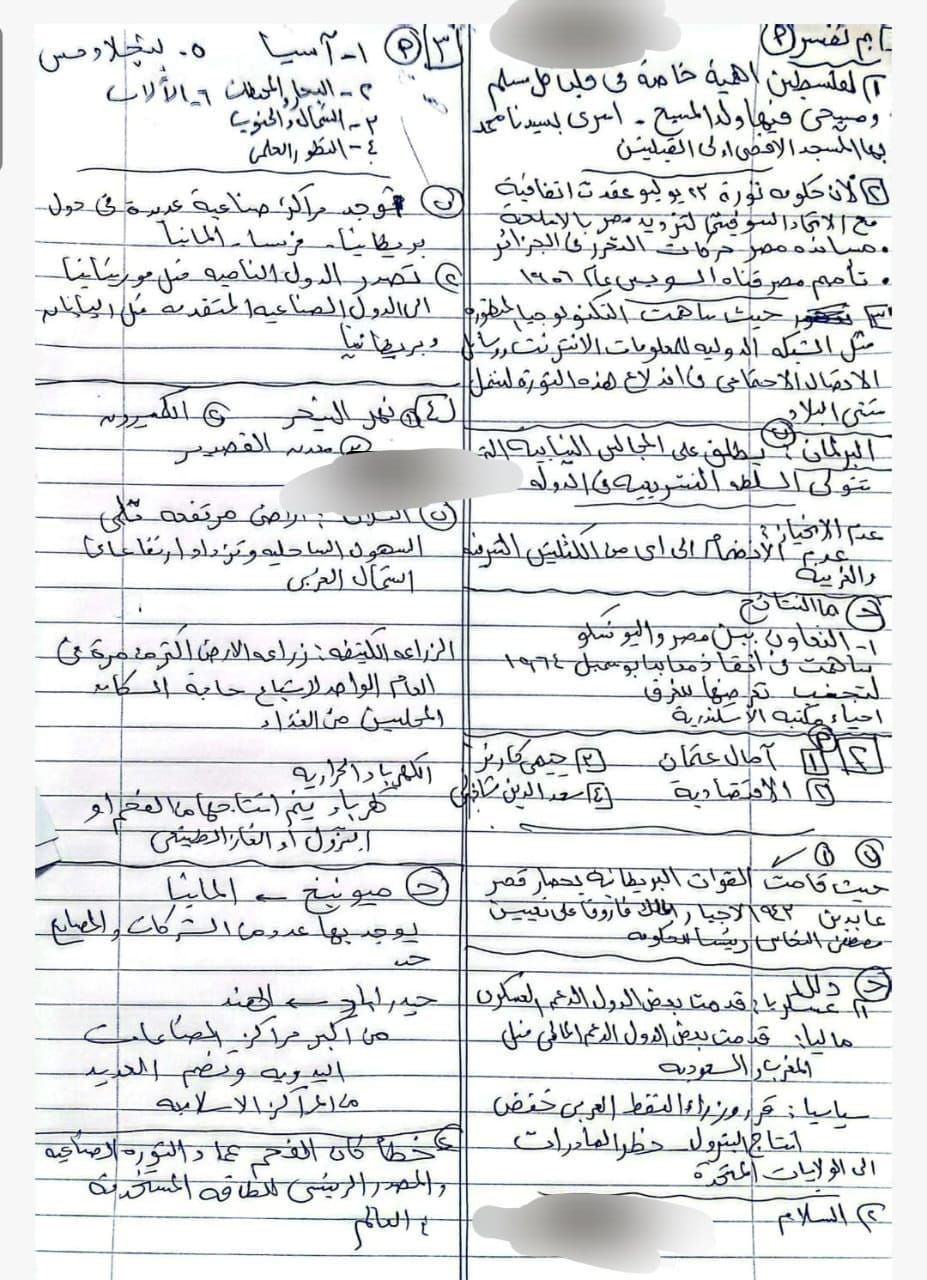 بم تفسر (P)
١) لفلسطين اهمية خاصة فى قلب كل مسلم
ومسيحى ففيها ولد المسيح - اسرى بسيدنا محمد
بها المسجد الاقصى اولى القبلتين
٢) لأن حكومه ثورة ٢٣ يوليو عقدت اتفاقية
مع الاتحاد السوفيتى لتزويد مصر بالاسلحة
• مسانده مصر حركات التحرر فى الجزائر
• تأميم مصر قناه السويس عام ١٩٥٦
٣) حيث ساهمت التكنولوجيا المتطوره
مثل الشبكه الدوليه للمعلومات الانترنت ورسائل
الاتصال الاجتماعى فى اندلاع هذه الثورة لتشمل
شتى البلاد
(ب)
البرلمان : يطلق على المجالس النيابية التى
تتولى السلطه التشريعيه فى الدوله
عدم الانحياز :
عدم الانضمام الى اى من الكتلتين الشرقيه
والغربية
(ح) ما النتائج
١- التعاون بين مصر واليونسكو
ساهمت فى انقاذ معابد ابوسمبل ١٩٦٤
لتجنب تعرضها للغرق
احياء مكتبه الاسكندرية
٢ (P) ١ آمال عثمان ٣ جيمى كارتر
٢ الاقتصادية ٤ سعد الدين شاذلى
(ب) (١) ✓
حيث قامت القوات البريطانية بحصار قصر
عابدين ١٩٤٢ لاجبار الملك فاروق على تعيين
مصطفى النحاس رئيسا للحكومه
(ح) دلل
١) عسكريا : قدمت بعض الدول الدعم العسكرى
ماليا : قدمت بعض الدول الدعم المالى مثل
المغرب والسعوديه
سياسيا : قرر وزراء النفط العربى خفض
انتاج البترول حظر الصادرات
الى الولايات المتحدة
٢) السلام
٣ (P) ١- آسيا ٥- بنجلاديش
٢- البحار والمحيطات ٦- الألاب
٣- الشمال والجنوب
٤- التطور العلمى
(ب) توجد مراكز صناعية عديدة فى دول
بريطانيا - فرنسا - المانيا
٢) تصدر الدول الناميه مثل موريتانيا
الى الدول الصناعيه المتقدمه مثل اليابان
وبريطانيا
٤ (١) نهر النيجر (٢) الكاميرون
(٣) معدن القصدير
(ب) : اراضى مرتفعه تلى
السهول الساحليه وتزداد ارتفاعا فى
الشمال الغربى
الزراعه الكثيفه : زراعه الارض اكثر من مرة فى
العام الواحد لاشباع حاجة السكان
المحليين من الغذاء
الكهرباء الحراريه
كهرباء يتم انتاجها من الفحم او
البترول او الغاز الطبيعى
(ح) ميونيخ ← المانيا
يوجد بها عدد من الشركات والمصانع
حيدر اباد ← الهند
من أكبر مراكز الصناعات
اليدويه وتضم العديد
من المراكز الاسلاميه
خطأ كان الفحم عماد الثوره الصناعيه
والمصدر الرئيسى للطاقه المستخدمة
فى العالم